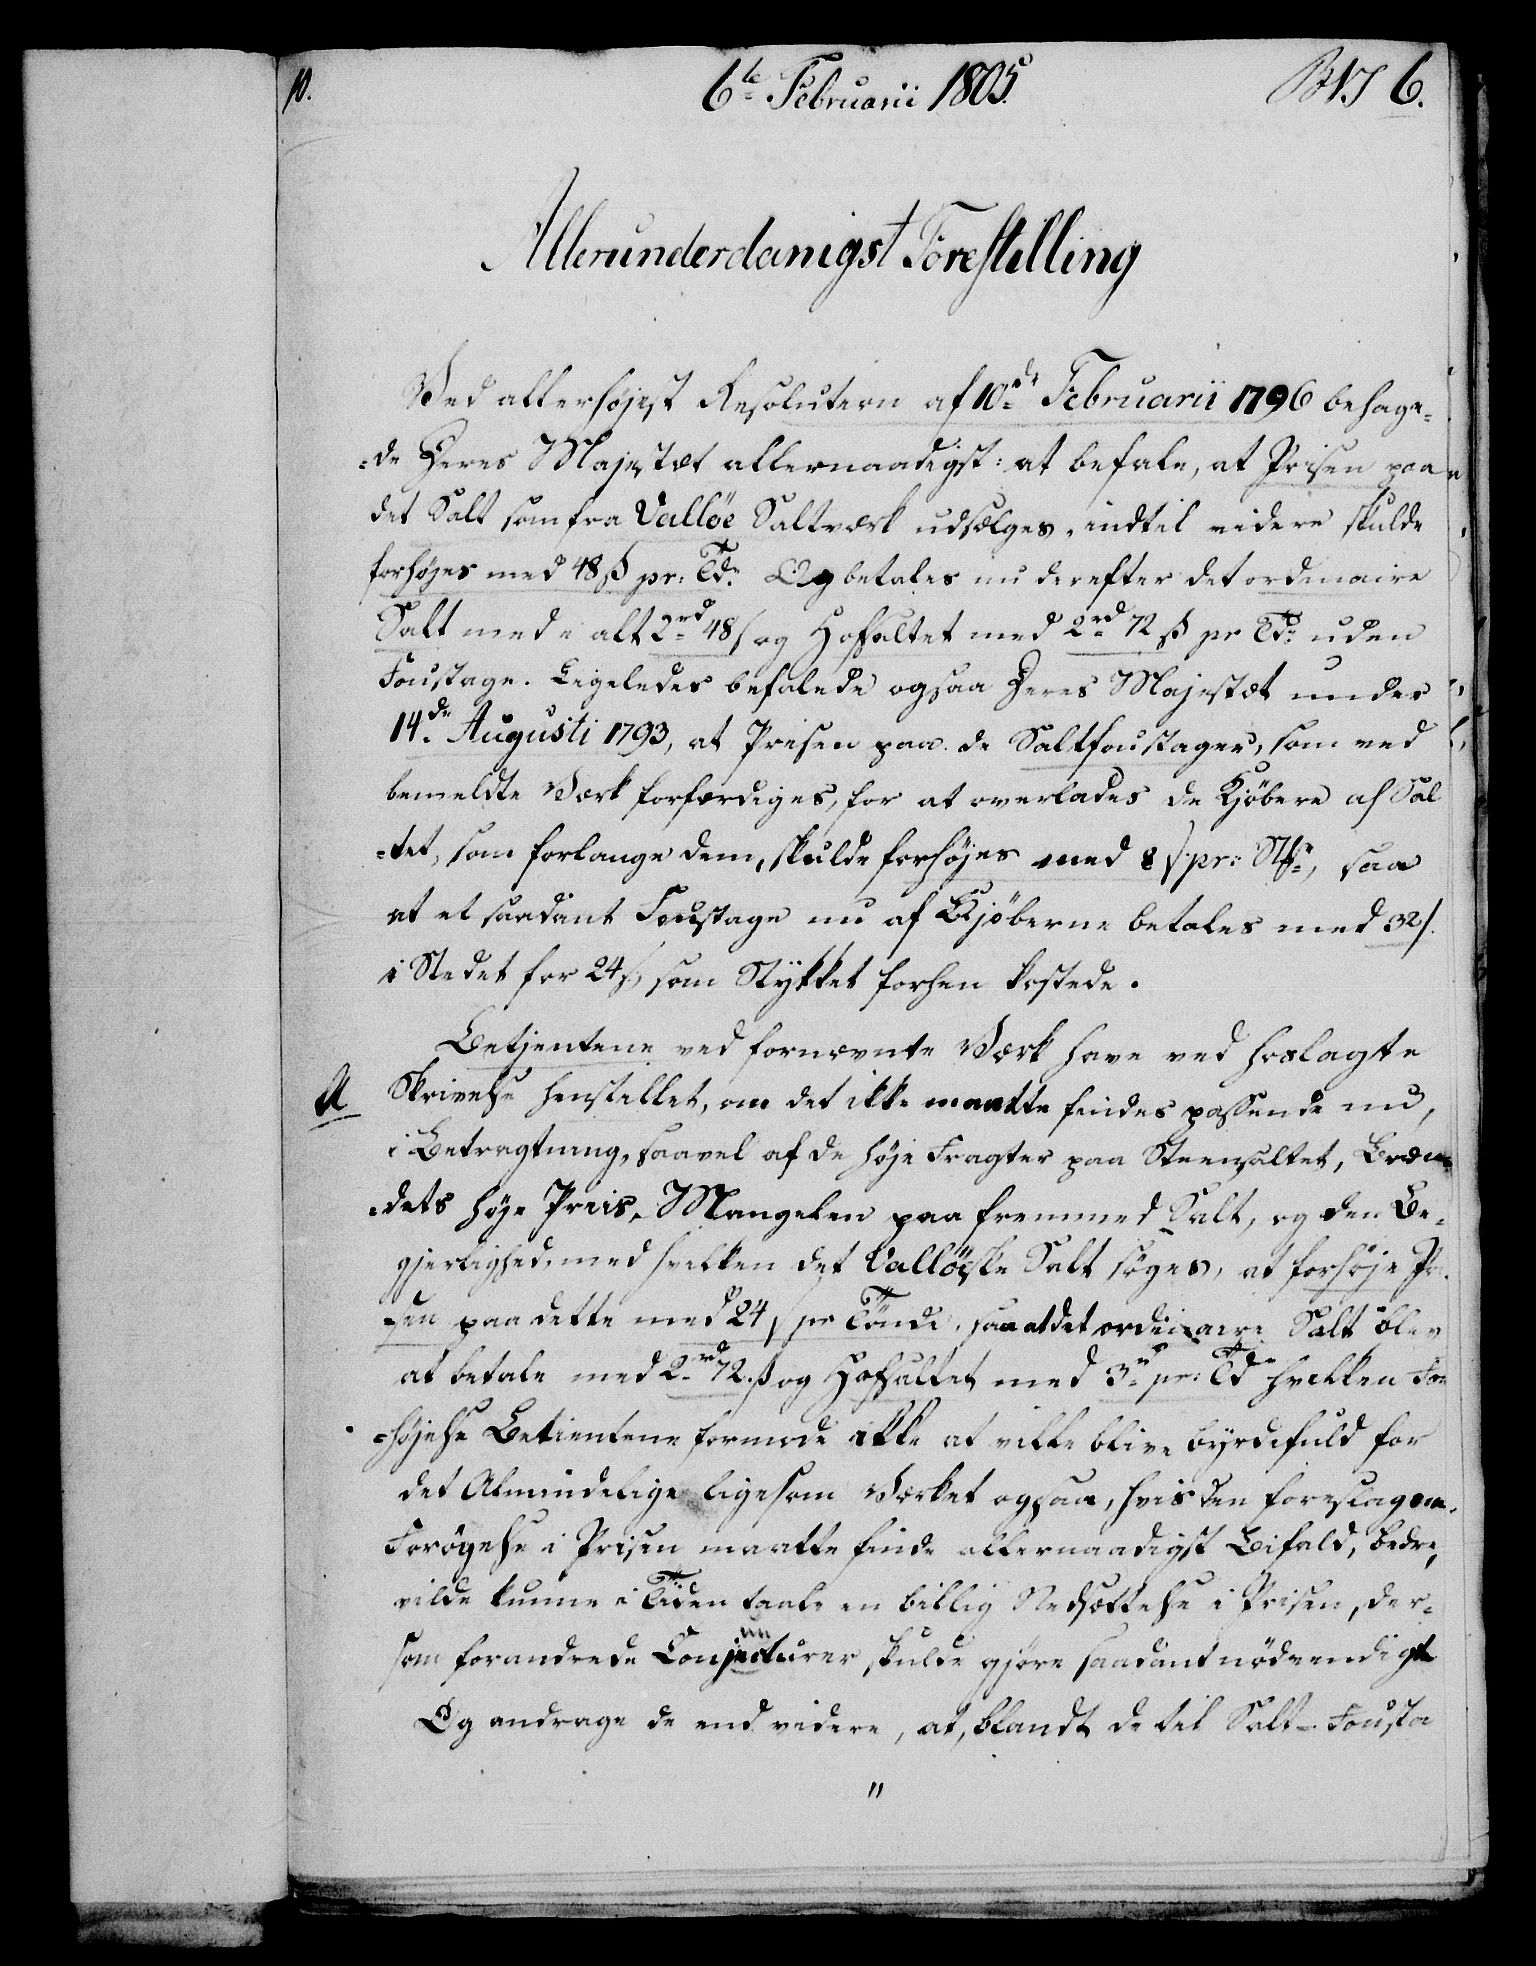 10.
6te Februarii 1805.
6.
Allerunderdanigst Forestilling
Ved allerhøjest Resolution af 10de Februarii 1796 behage-
-de Deres Majestæt allernaadigst: at befale, at Prisen paa
det Salt som fra Valløe Saltværk udsælges, indtil videre skulde
forhøjes med 48 ß pr: Tde. Og betales nu derefter det ordinaire
Salt med i alt 2rd 48 ß og Hofsaltet med 2rd 72 ß pr Tde uden
Foustage. Ligeledes befalede ogsaa Deres Majestæt under
14de Augusti 1793, at Prisen paa de Saltfoustager, som ved
bemeldte Værk forfærdiges, for at overlades de Kjöbere af Sal
-tet, som forlange dem, skulde forhøjes med 8 ß pr: Stk, saa
at et saadant Foustage nu af Kjöberne betales med 32 ß.
i Stedet for 24 ß, som Stykket forhen kostede.
Betjentene ved fornævnte Værk have ved hoslagte
A Skrivelse henstillet, om det ikke maatte findes passende nu,
i Betragtning, saavel af de høje Fragter paa Steensaltet, Bræn-
-dets høje Priis, Mangelen paa fremmed Salt, og den Be-
gjerlighed, med hvilken det Vallöeske Salt søges, at forhøje Pri-
-sen paa dette med 24 ß pr Tönde, saa at det ordinaire Salt blev
at betale med 2rd 72. ß og Hofsaltet med 3rd pr: Tde hvilken For
-højelse Betientene formode ikke at ville blive byrdefuld for
det Almindelige ligesom Værket ogsaa, hvis den foreslagene
Forögelse i Prisen maatte finde allernaadigst Bifald, bedre,
vilde kunne i Tiden taale en billig Nedsættelse i Prisen, der-
som forandrede Conjuncturer skulde gjöre saadant nödvendigt
Og andrage de end videre, at, blandt de til Salt-Fousta
"